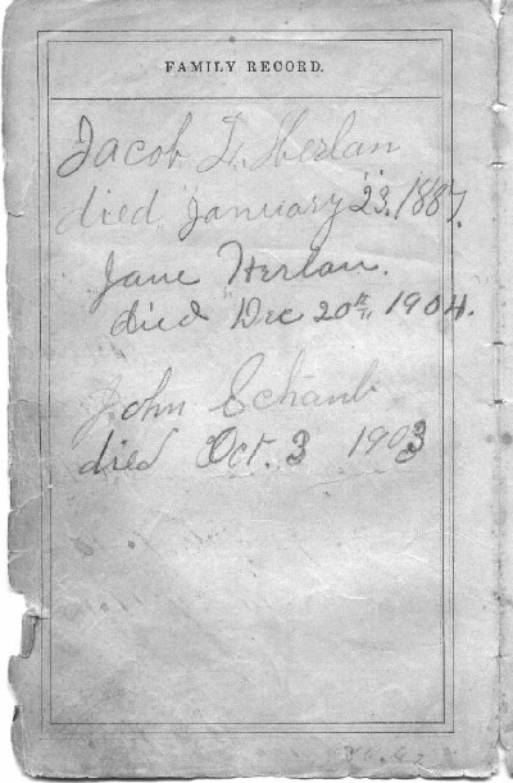 FAMILY RECORD.
Jacob L. Herlan
died January 23. 1887.
Jane Herlan.
died Dec 20th 1904.
John Schaub
died Oct. 3 1903